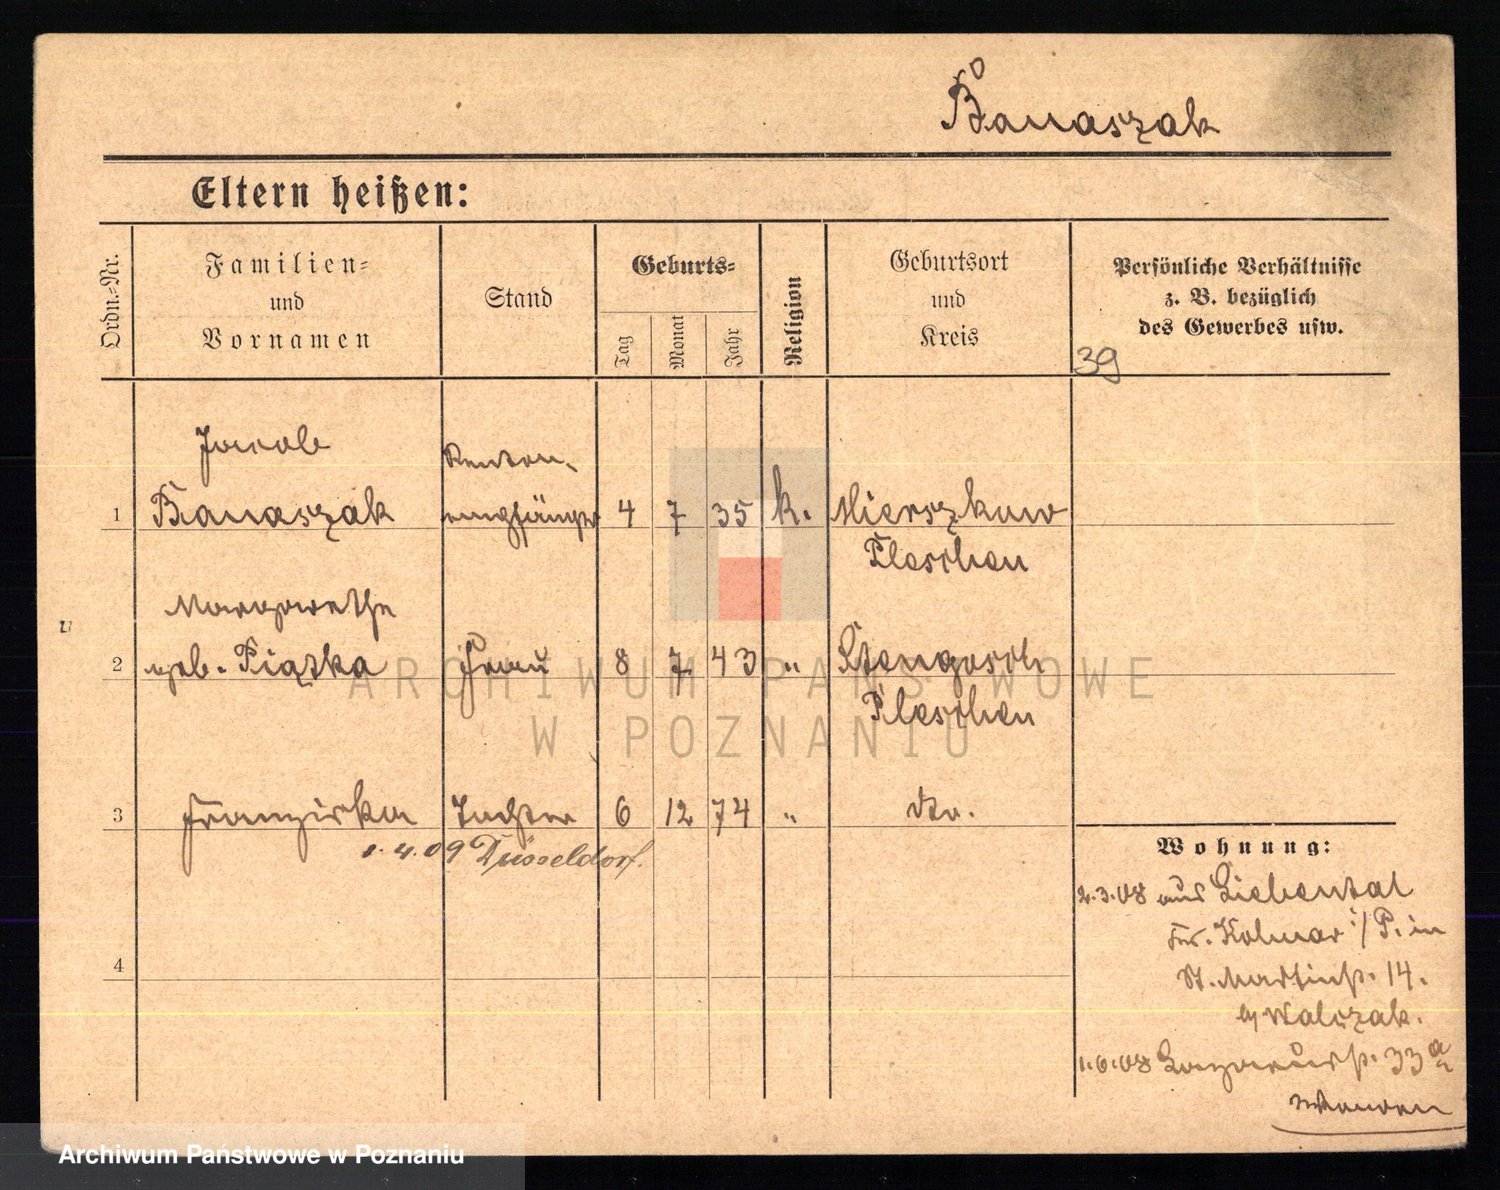 Banaszak
Eltern heißen:
Ordn.-Nr.
Familien-
und
Vornamen
Stand
Geburts-
Tag
Monat
Jahr
Religion
Geburtsort
und
Kreis
Persönliche Verhältnisse
z. B. bezüglich
des Gewerbes usw.
39
Jacob
Renten-
1 Banaszak empfänger 4 7 35 k. Mierszkow
Pleschen
Margarethe
2 geb. Piątka Frau 8 7 43 " Stengosch
Pleschen
3 Franziska Tochter 6 12 74 " dto.
1.4.09 Düsseldorf.
4
Wohnung:
2.3.08 aus Liebental
Kr. Kolmar i/P. in
St. Martinstr. 14.
b/ Walczak.
1.6.08 Lazarusstr. 33a
ARCHIWUM PAŃSTWOWE
W POZNANIU
Archiwum Państwowe w Poznaniu